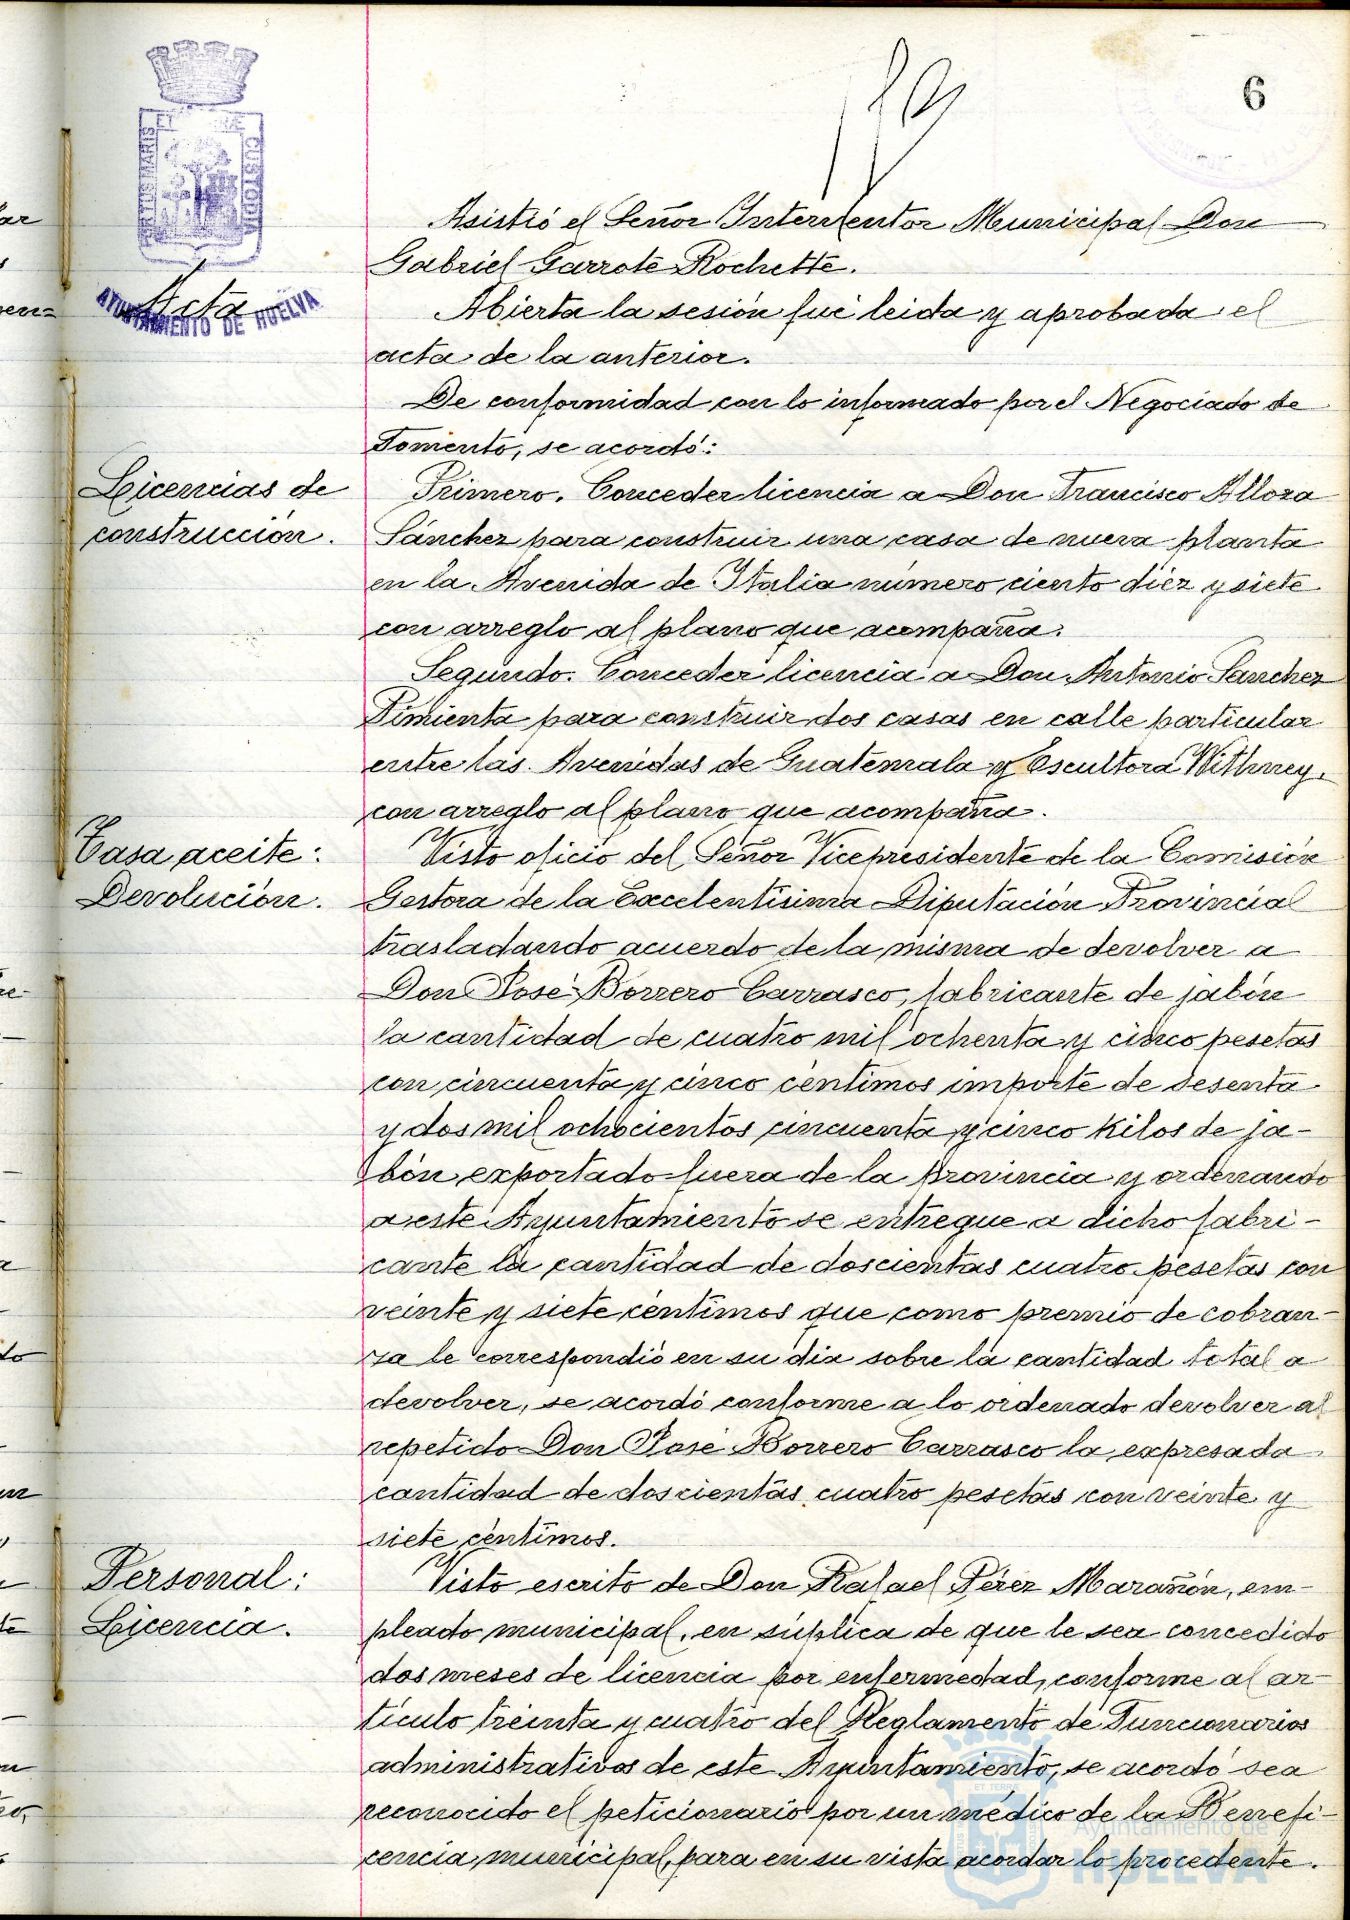 6
PORTUS MARIS ET TERRAE CUSTODIA
AYUNTAMIENTO DE HUELVA
Asistió el Señor Interventor Municipal Don
Gabriel Garrote Rochette.
Acta
Abierta la sesión fué leida y aprobada el
acta de la anterior.
De conformidad con lo informado por el Negociado de
Fomento, se acordó:
Licencias de
construcción.
Primero. Conceder licencia a Don Francisco Alloza
Sánchez para construir una casa de nueva planta
en la Avenida de Italia número ciento diez y siete
con arreglo al plano que acompaña.
Segundo. Conceder licencia a Don Antonio Sanchez
Pimienta para construir dos casas en calle particular
entre las Avenidas de Guatemala y Escultora Withney,
con arreglo al plano que acompaña.
Tasa aceite:
Devolución.
Visto oficio del Señor Vicepresidente de la Comisión
Gestora de la Excelentísima Diputación Provincial
trasladando acuerdo de la misma de devolver a
Don José Borrero Carrasco, fabricante de jabón
la cantidad de cuatro mil ochenta y cinco pesetas
con cincuenta y cinco céntimos importe de sesenta
y dos mil ochocientos cincuenta y cinco kilos de ja-
bón exportado fuera de la provincia y ordenando
a este Ayuntamiento se entregue a dicho fabri-
cante la cantidad de doscientas cuatro pesetas con
veinte y siete céntimos que como premio de cobran-
za le correspondió en su dia sobre la cantidad total a
devolver, se acordó conforme a lo ordenado devolver al
repetido Don José Borrero Carrasco la expresada
cantidad de doscientas cuatro pesetas con veinte y
siete céntimos.
Personal:
Licencia.
Visto escrito de Don Rafael Pérez Marañón, em-
pleado municipal, en súplica de que le sea concedido
dos meses de licencia por enfermedad, conforme al ar-
tículo treinta y cuatro del Reglamento de Funcionarios
administrativos de este Ayuntamiento, se acordó sea
reconocido el peticionario por un médico de la Benefi-
cencia municipal, para en su vista acordar lo procedente.
Ayuntamiento de
HUELVA